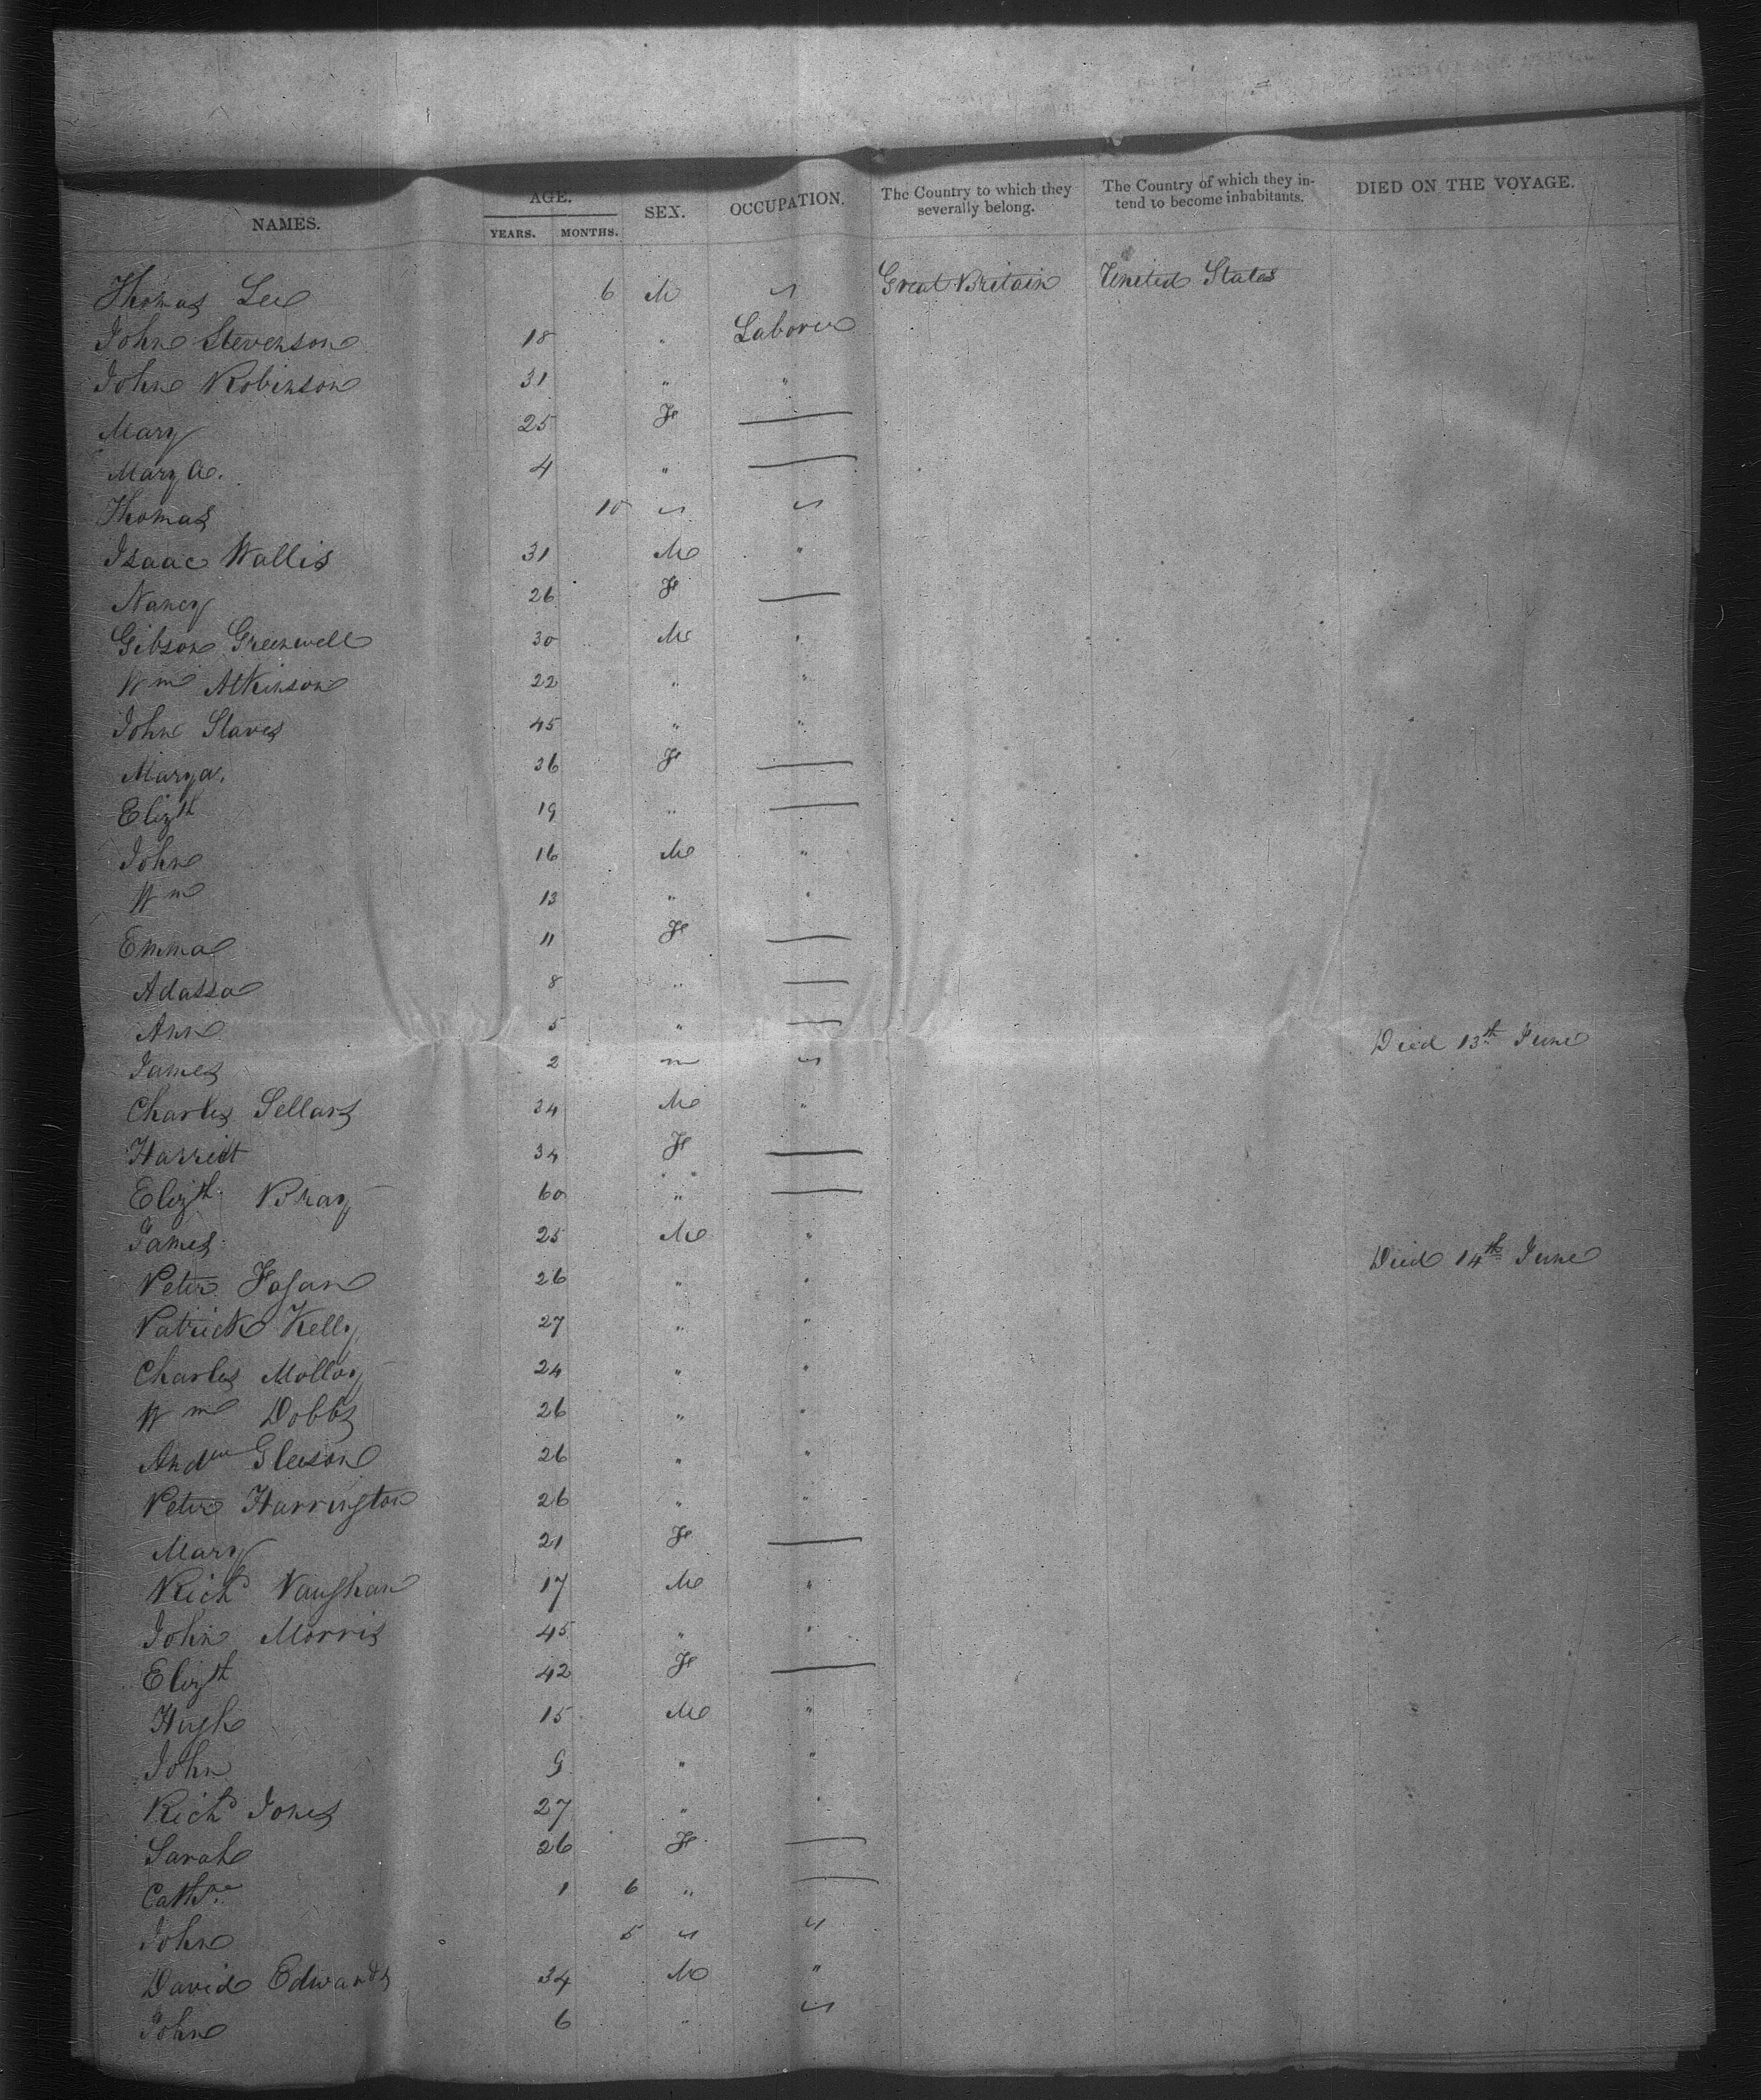 NAMES. AGE. YEARS. MONTHS. SEX. OCCUPATION. The Country to which they severally belong. The Country of which they intend to become inhabitants. DIED ON THE VOYAGE.
Thomas Lee 6 M " Great Britain United States
John Stevenson 18 " Laborer
John Robinson 31 " "
Mary 25 F —
Mary A. 4 " —
Thomas 10 " "
Isaac Wallis 31 M "
Nancy 26 F —
Gibson Greenwell 30 M "
Wm Atkinson 22 " "
John Slaves 45 " "
Mary A. 36 F —
Elizth 19 " —
John 16 M "
Wm 13 " "
Emma 11 F —
Adassa 8 " —
Ann 5 " — Died 13th June
James 2 "
Charles Sellars 34 M "
Harriett 34 F —
Elizth Bray 60 " —
James 25 M " Died 14th June
Peter Fagan 26 " "
Patrick Kelly 27 " "
Charles Molloy 24 " "
Wm Dobbs 26 " "
Andw Gleeson 26 " "
Peter Harrington 26 " "
Mary 21 F —
Richd Vaughan 17 M "
John Morris 45 " "
Elizth 42 F —
Hugh 15 M "
John 9 " "
Richd Jones 27 " "
Sarah 26 F —
Cathne 1 6 " —
John 5 " "
David Edwards 34 M "
John 6 " "